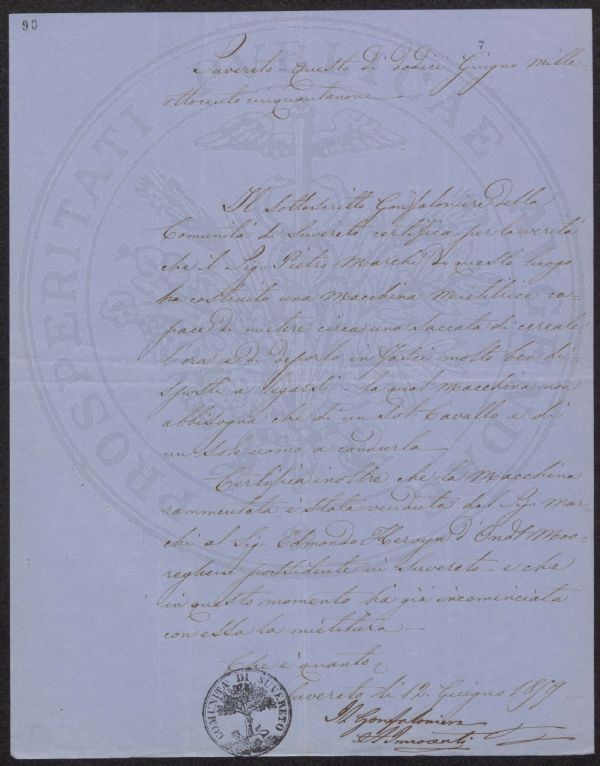 90
Suvereto - Questo dì dodici Giugno mille
ottocento cinquantanove
Il Sottoscritto Gonfaloniere della
Comunità di Suvereto certifica per la verità
che il Sig. Pietro Marchi di questo luogo
ha costruito una Macchina Mietitrice ca-
pace di mietere circa una Saccata di cereale
l'ora e di deporlo in fasci molto ben di-
sposti a legarsi - la qual Macchina non
abbisogna che di un Sol Cavallo e di
un Solo uomo a condurla
Certifica inoltre che la Macchina
rammentata è stata venduta dal Sig. Mar-
chi al Sig. Edmondo
possidente in Suvereto - e che
in questo momento ha già incominciata
con essa la mietitura
Che è quanto
Suvereto dì 12 Giugno 1859
Il Gonfaloniere
Innocenti
COMUNITÀ DI SUVERETO
PROSPERITATI PUBLICAE AUGENDAE